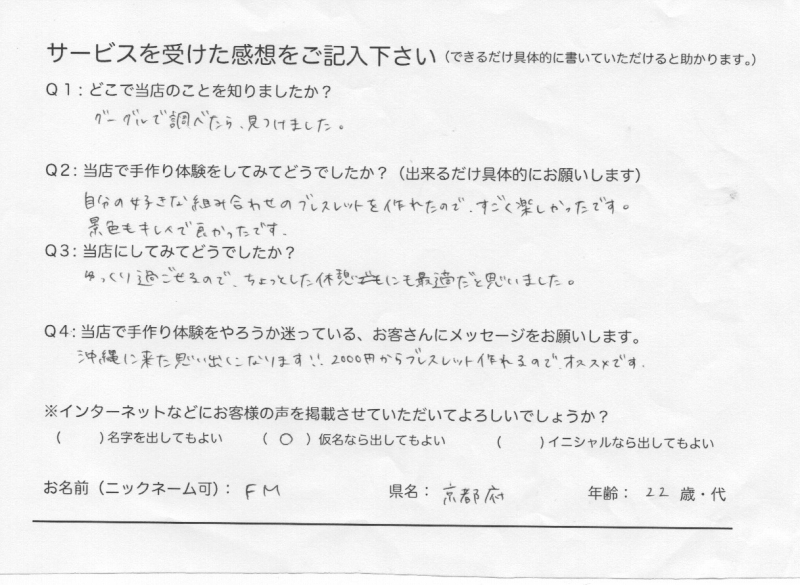 サービスを受けた感想をご記入下さい（できるだけ具体的に書いていただけると助かります。）
Q1：どこで当店のことを知りましたか？
グーグルで調べたら、見つけました。
Q2：当店で手作り体験をしてみてどうでしたか？（出来るだけ具体的にお願いします）
自分の好きな組み合わせのブレスレットを作れたので、すごく楽しかったです。
景色もキレイで良かったです。
Q3：当店にしてみてどうでしたか？
ゆっくり過ごせるので、ちょっとした休憩にも最適だと思いました。
Q4：当店で手作り体験をやろうか迷っている、お客さんにメッセージをお願いします。
沖縄に来た思い出になります!! 2000円からブレスレット作れるので、オススメです.
※インターネットなどにお客様の声を掲載させていただいてよろしいでしょうか？
（　）名字を出してもよい （○）仮名なら出してもよい （　）イニシャルなら出してもよい
お名前（ニックネーム可）：FM 県名：京都府 年齢：22 歳・代